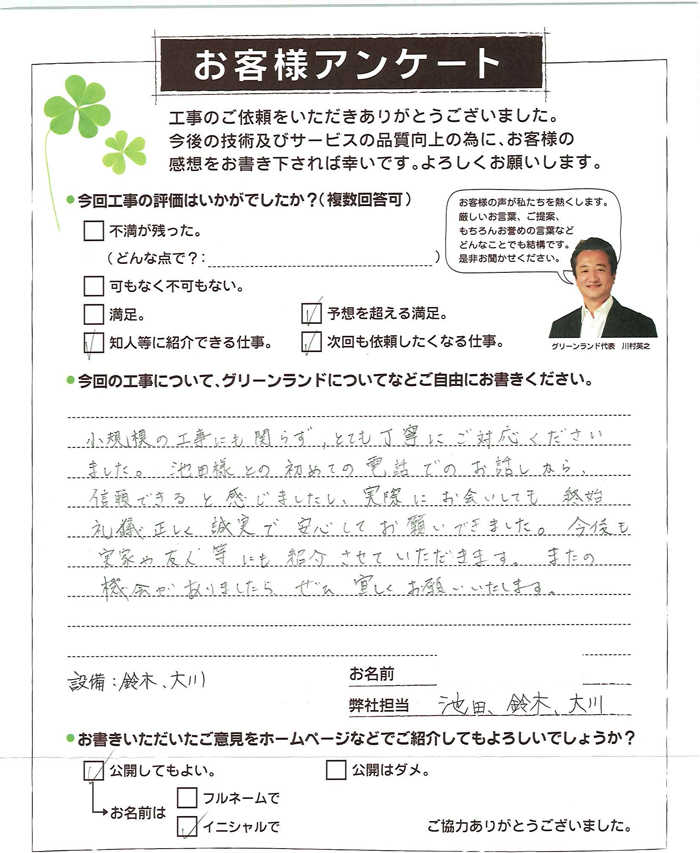 お客様アンケート
工事のご依頼をいただきありがとうございました。
今後の技術及びサービスの品質向上の為に、お客様の
感想をお書き下されば幸いです。よろしくお願いします。
●今回工事の評価はいかがでしたか?(複数回答可)
不満が残った。
(どんな点で?: )
可もなく不可もない。
満足。
予想を超える満足。
知人等に紹介できる仕事。
次回も依頼したくなる仕事。
お客様の声が私たちを熱くします。
厳しいお言葉、ご提案、
もちろんお誉めの言葉など
どんなことでも結構です。
是非お聞かせください。
グリーンランド代表 川村英之
●今回の工事について、グリーンランドについてなどご自由にお書きください。
小規模の工事にも関らず、とても丁寧にご対応ください
ました。池田様との初めての電話でのお話しなら、
信頼できると感じましたし、実際にお会いしても終始
礼儀正しく誠実で安心してお願いできました。今後も
実家や友人等にも紹介させていただきます。またの
機会がありましたら、ぜひ宜しくお願いいたします。
設備:鈴木、大川
お名前
弊社担当 池田、鈴木、大川
●お書きいただいたご意見をホームページなどでご紹介してもよろしいでしょうか?
公開してもよい。
公開はダメ。
お名前は
フルネームで
イニシャルで
ご協力ありがとうございました。